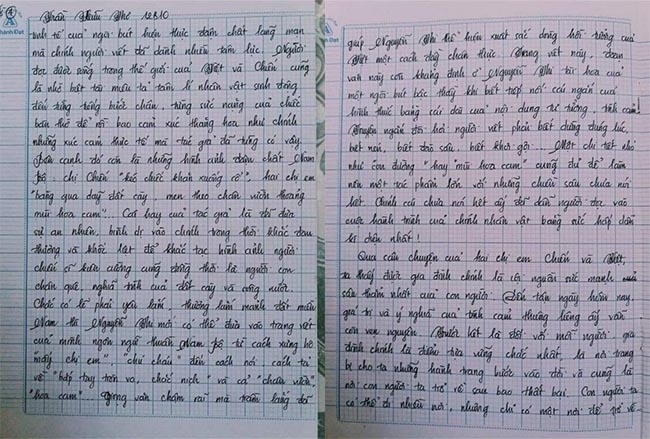 Trần Hữu Thế 12B10
tinh tế của ngòi bút hiện thực đậm chất lãng mạn
mà chính người viết đã dành nhiều tâm lực. Người
đọc được sống trong thế giới của Việt và Chiến cũng
là nhờ bút tài miêu tả tâm lí nhân vật sinh động
đến từng tiếng bước chân, từng sức nặng của chiếc
bàn thờ để rồi bao cảm xúc thăng hoa như chính
những xúc cảm thực tế mà tác giả đã từng có vậy.
Bên cạnh đó còn là những hình ảnh đậm chất Nam
Bộ, chị Chiến "kéo chiếc khăn xuống cổ", hai chị em
"băng qua dãy đất cày, men theo chân vườn thoảng
mùi hoa cam"... Cái hay của tác giả là đã đưa
sự an nhiên, bình dị vào chính trong thời khắc đau
thương và khốc liệt để khắc tạc hình ảnh người
chiến sĩ kiên cường cũng đồng thời là người con
chan quê nghĩa tình của đất cày và ruộng nước.
Chắc có lẽ phải yêu lắm, thương lắm mảnh đất miền
Nam thì Nguyễn Thi mới có thể đưa vào trang viết
của mình ngôn ngữ thuần Nam Bộ từ cách xưng hô
"mấy chị em", "chú cháu" đến cách nói cách tả
về "bắp tay tròn vo, chắc nịch" và cả "chân vườn",
"hoa cam"... Giọng văn chậm rãi mà trầm lắng đã
giúp Nguyễn Thi thể hiện xuất sắc dòng hồi tưởng của
Việt một cách đầy chân thực. Trang viết này, đoạn
văn này còn khẳng định ở Nguyễn Thi tài hoa của
một ngòi bút bậc thầy khi biết tiếp nối cái ngắn của
hình thức bằng cái dài của nội dung tư tưởng, tình cảm.
Truyện ngắn đòi hỏi người viết phải biết dừng đúng lúc,
biết nén, biết đào sâu, biết khơi gợi... Một chi tiết nhỏ
như con đường "hay" mùi hoa cam" cũng đủ để làm
nên một tác phẩm lớn với những chiều sâu chưa nói
hết. Chính cái chưa nói hết ấy đã dẫn người đọc vào
cuộc hành trình của chính nhân vật bằng sức hấp dẫn
kì diệu nhất!
Qua câu chuyện của hai chị em Chiến và Việt,
ta thấy được gia đình chính là cội nguồn sức mạnh
sâu thẳm nhất của con người. Đến tận ngày hôm nay
giá trị và ý nghĩa của tình cảm thiêng liêng ấy vẫn
còn vẹn nguyên. Trước hết là đối với mỗi người, gia
đình chính là điểm tựa vững chắc nhất, là nơi trang
bị cho ta những hành trang bước vào đời và cũng là
nơi con người ta trở về sau bao thất bại. Con người ta
có thể đi nhiều nơi, nhưng chỉ có một nơi để trở về